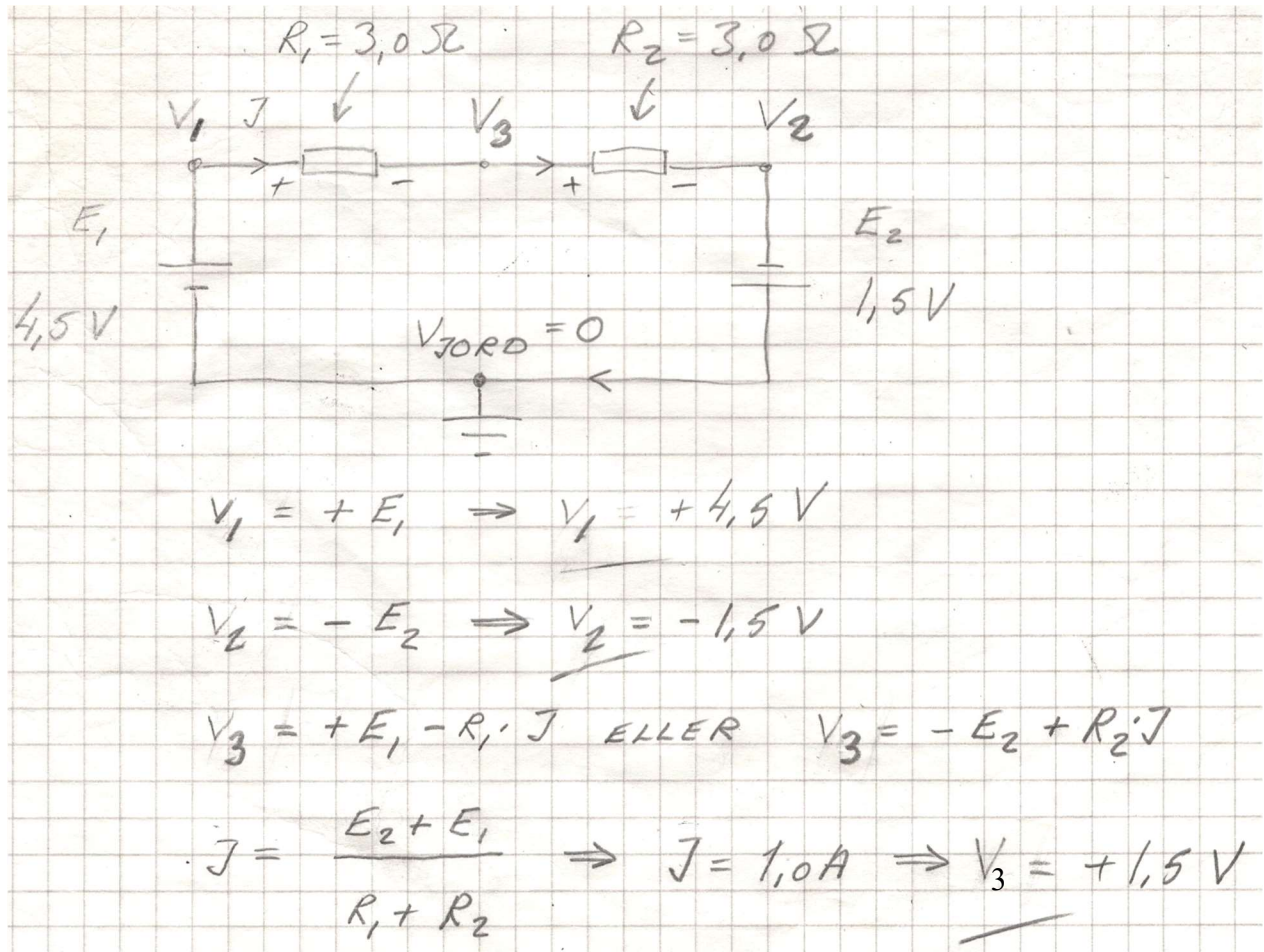 R₁ = 3,0 Ω R₂ = 3,0 Ω
V₁ J V₃ V₂
+ - + -
E₁ E₂
4,5 V 1,5 V
V_JORD = 0
V₁ = + E₁ ⇒ V₁ = + 4,5 V
V₂ = - E₂ ⇒ V₂ = - 1,5 V
V₃ = + E₁ - R₁ · J ELLER V₃ = - E₂ + R₂ · J
J = (E₂ + E₁) / (R₁ + R₂) ⇒ J = 1,0 A ⇒ V₃ = + 1,5 V